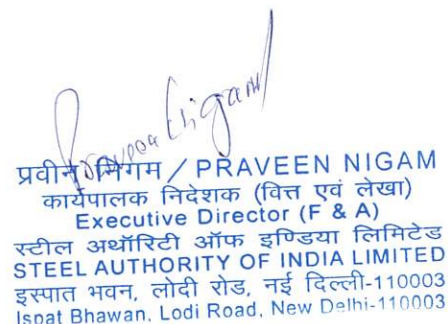 Praveen Nigam
प्रवीन निगम / PRAVEEN NIGAM
कार्यपालक निदेशक (वित्त एवं लेखा)
Executive Director (F & A)
स्टील अथॉरिटी ऑफ इण्डिया लिमिटेड
STEEL AUTHORITY OF INDIA LIMITED
इस्पात भवन, लोदी रोड, नई दिल्ली-110003
Ispat Bhawan, Lodi Road, New Delhi-110003